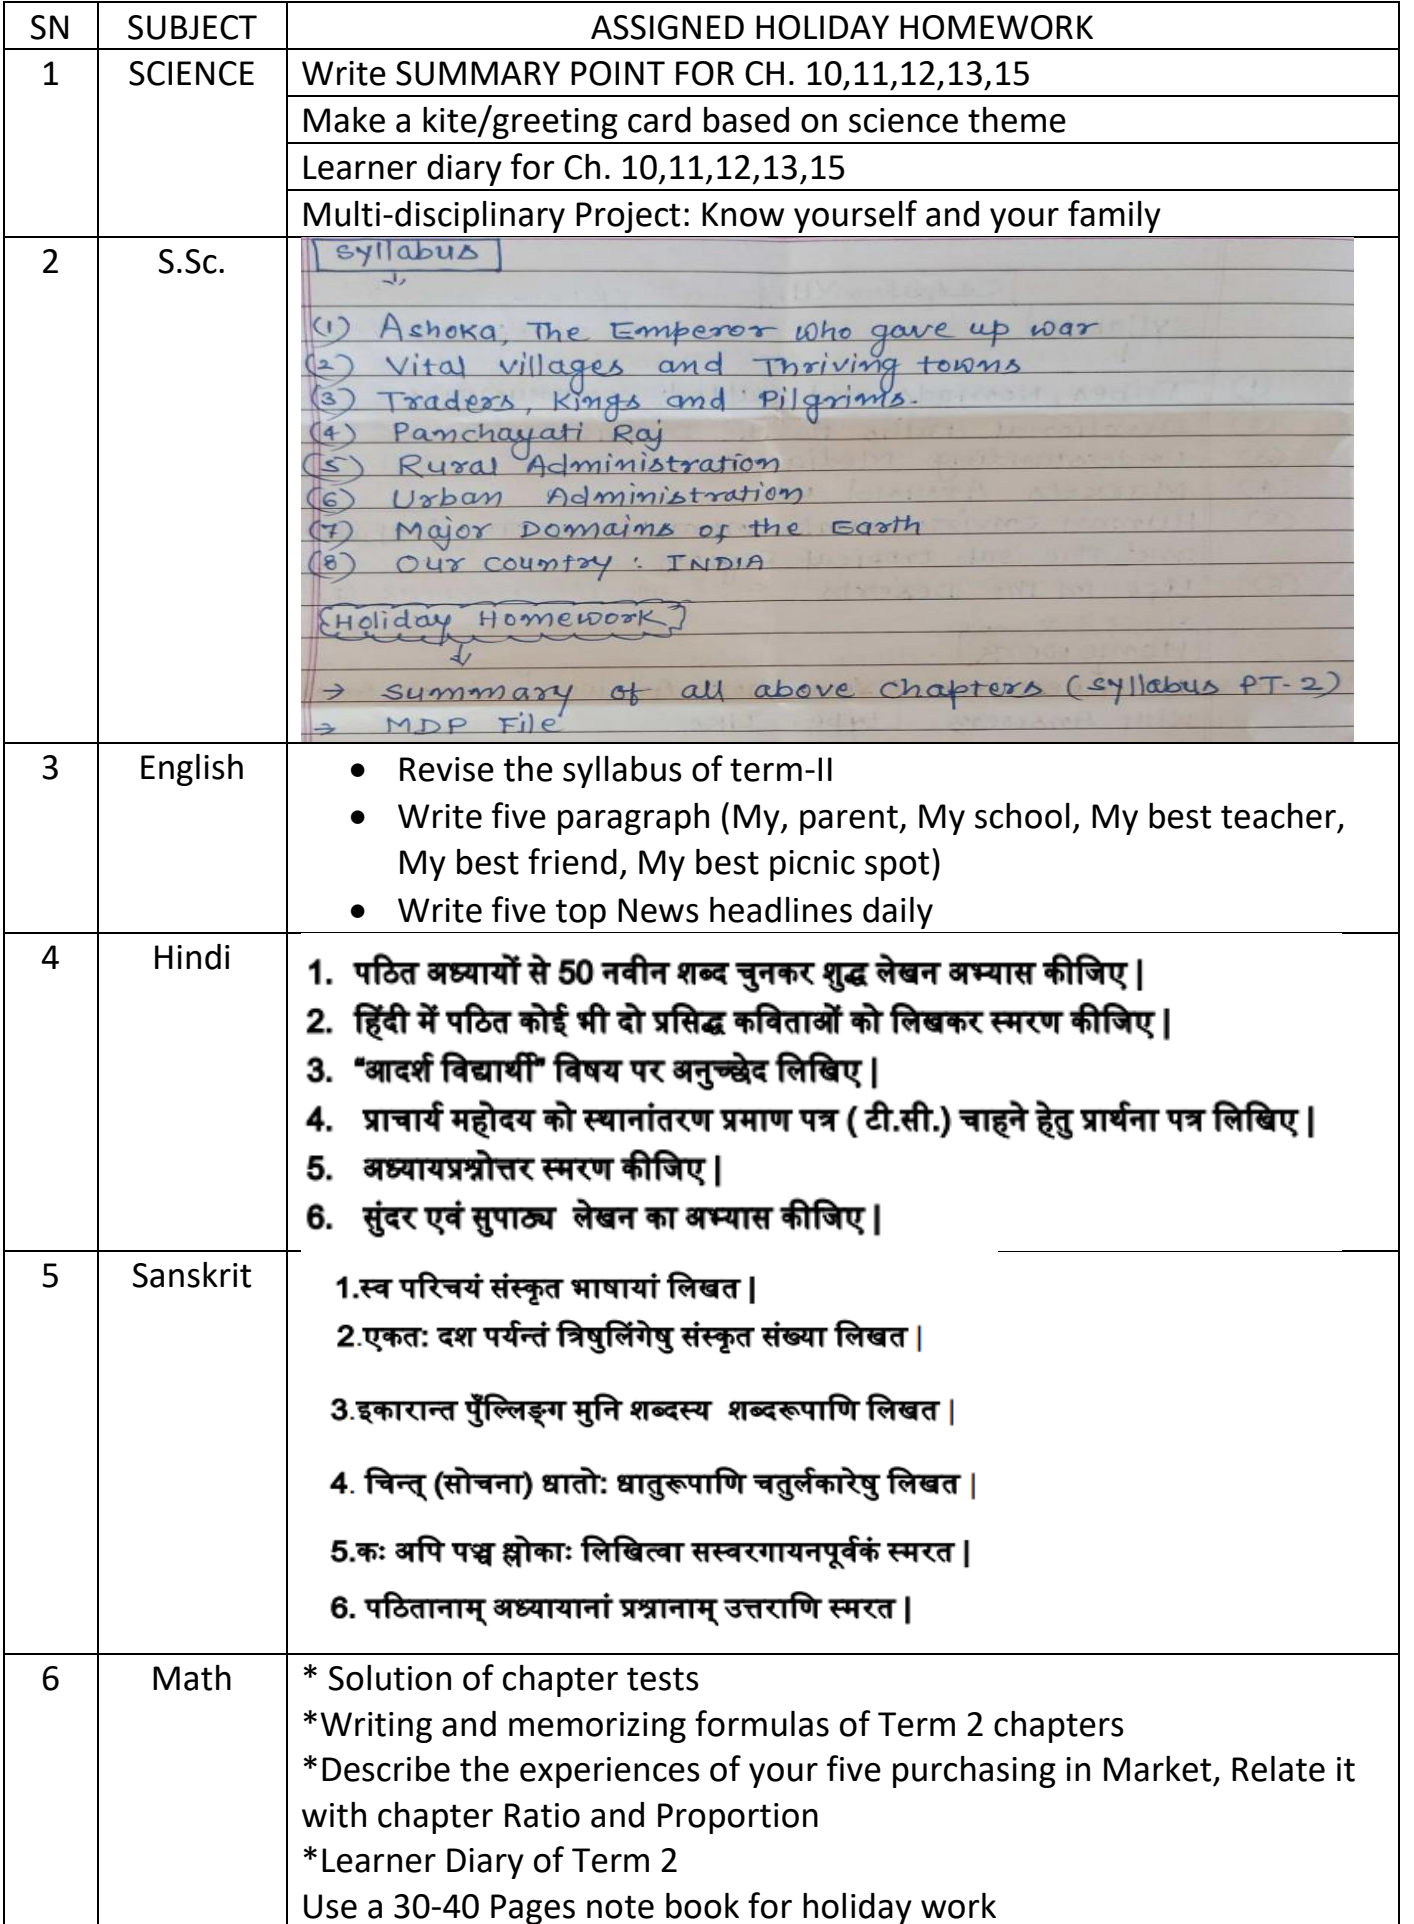 SN SUBJECT ASSIGNED HOLIDAY HOMEWORK
1 SCIENCE Write SUMMARY POINT FOR CH. 10,11,12,13,15
Make a kite/greeting card based on science theme
Learner diary for Ch. 10,11,12,13,15
Multi-disciplinary Project: Know yourself and your family
2 S.Sc. Syllabus
(1) Ashoka, The Emperor who gave up war
(2) Vital villages and Thriving towns
(3) Traders, Kings and Pilgrims.
(4) Panchayati Raj
(5) Rural Administration
(6) Urban Administration
(7) Major Domains of the Earth
(8) Our country : INDIA
Holiday Homework
→ Summary of all above chapters (syllabus PT-2)
→ MDP File
3 English • Revise the syllabus of term-II
• Write five paragraph (My, parent, My school, My best teacher,
My best friend, My best picnic spot)
• Write five top News headlines daily
4 Hindi 1. पठित अध्यायों से 50 नवीन शब्द चुनकर शुद्ध लेखन अभ्यास कीजिए |
2. हिंदी में पठित कोई भी दो प्रसिद्ध कविताओं को लिखकर स्मरण कीजिए |
3. “आदर्श विद्यार्थी” विषय पर अनुच्छेद लिखिए |
4. प्राचार्य महोदय को स्थानांतरण प्रमाण पत्र ( टी.सी.) चाहने हेतु प्रार्थना पत्र लिखिए |
5. अध्यायप्रश्नोत्तर स्मरण कीजिए |
6. सुंदर एवं सुपाठ्य लेखन का अभ्यास कीजिए |
5 Sanskrit 1.स्व परिचयं संस्कृत भाषायां लिखत |
2.एकत: दश पर्यन्तं त्रिषुलिंगेषु संस्कृत संख्या लिखत |
3.इकारान्त पुँल्लिङ्ग मुनि शब्दस्य शब्दरूपाणि लिखत |
4. चिन्त् (सोचना) धातो: धातुरूपाणि चतुर्लकारेषु लिखत |
5.कः अपि पञ्च श्लोकाः लिखित्वा सस्वरगायनपूर्वकं स्मरत |
6. पठितानाम् अध्यायानां प्रश्नानाम् उत्तराणि स्मरत |
6 Math * Solution of chapter tests
*Writing and memorizing formulas of Term 2 chapters
*Describe the experiences of your five purchasing in Market, Relate it
with chapter Ratio and Proportion
*Learner Diary of Term 2
Use a 30-40 Pages note book for holiday work